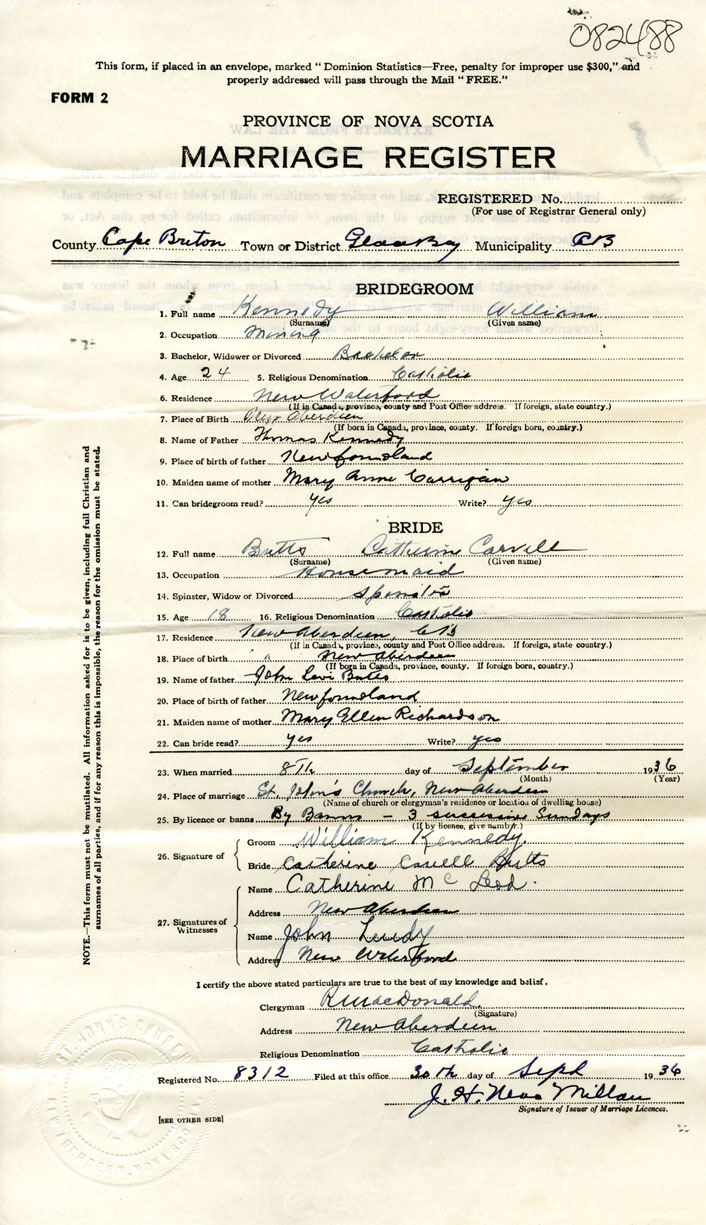 082488
This form, if placed in an envelope, marked "Dominion Statistics—Free, penalty for improper use $300," and
properly addressed will pass through the Mail "FREE."
FORM 2
PROVINCE OF NOVA SCOTIA
MARRIAGE REGISTER
REGISTERED No.
(For use of Registrar General only)
County Cape Breton Town or District Glace Bay Municipality CB
BRIDEGROOM
1. Full name Kennedy William
(Surname) (Given name)
2. Occupation Mining
3. Bachelor, Widower or Divorced Bachelor
4. Age 24 5. Religious Denomination Catholic
6. Residence New Waterford
(If in Canada, province, county and Post Office address. If foreign, state country.)
7. Place of Birth New Aberdeen
(If born in Canada, province, county. If foreign born, country.)
8. Name of Father Thomas Kennedy
9. Place of birth of father Newfoundland
10. Maiden name of mother Mary Anne Carrigan
11. Can bridegroom read? yes Write? yes
BRIDE
12. Full name Butts Catherine Carvell
(Surname) (Given name)
13. Occupation Housemaid
14. Spinster, Widow or Divorced Spinster
15. Age 18 16. Religious Denomination Catholic
17. Residence New Aberdeen, CB
(If in Canada, province, county and Post Office address. If foreign, state country.)
18. Place of birth " New Aberdeen
(If born in Canada, province, county. If foreign born, country.)
19. Name of father John Levi Butts
20. Place of birth of father Newfoundland
21. Maiden name of mother Mary Ellen Richardson
22. Can bride read? yes Write? yes
23. When married 8th day of September 1936
(Month) (Year)
24. Place of marriage St. John's Church, New Aberdeen
(Name of church or clergyman's residence or location of dwelling house)
25. By licence or banns By Banns - 3 successive Sundays
(If by licence, give number.)
26. Signature of
Groom William Kennedy
Bride Catherine Carvell Butts
27. Signatures of Witnesses
Name Catherine McLeod.
Address New Aberdeen
Name John
Address New Waterford
I certify the above stated particulars are true to the best of my knowledge and belief.
Clergyman R MacDonald
(Signature)
Address New Aberdeen
Religious Denomination Catholic
Registered No. 8312 Filed at this office 30th day of Sept 1936
J. H.
Signature of Issuer of Marriage Licences.
[SEE OTHER SIDE]
NOTE.—This form must not be mutilated. All information asked for is to be given, including full Christian and
surnames of all parties, and if for any reason this is impossible, the reason for the omission must be stated.